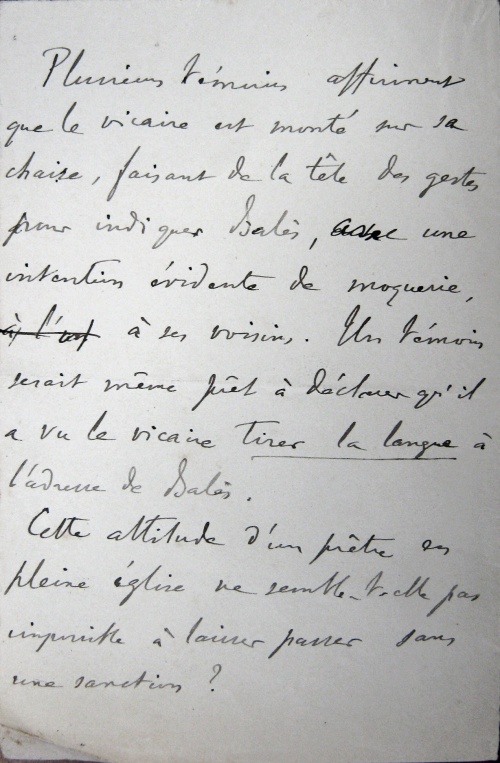 Plusieurs témoins affirment
que le vicaire est monté sur sa
chaise, faisant de la tête des gestes
pour indiquer Balès, avec une
intention évidente de moquerie,
à ses voisins. Un témoin
serait même prêt à déclarer qu'il
a vu le vicaire tirer la langue à
l'adresse de Balès.
Cette attitude d'un prêtre en
pleine église ne semble-t-elle pas
impossible à laisser passer sans
une sanction ?